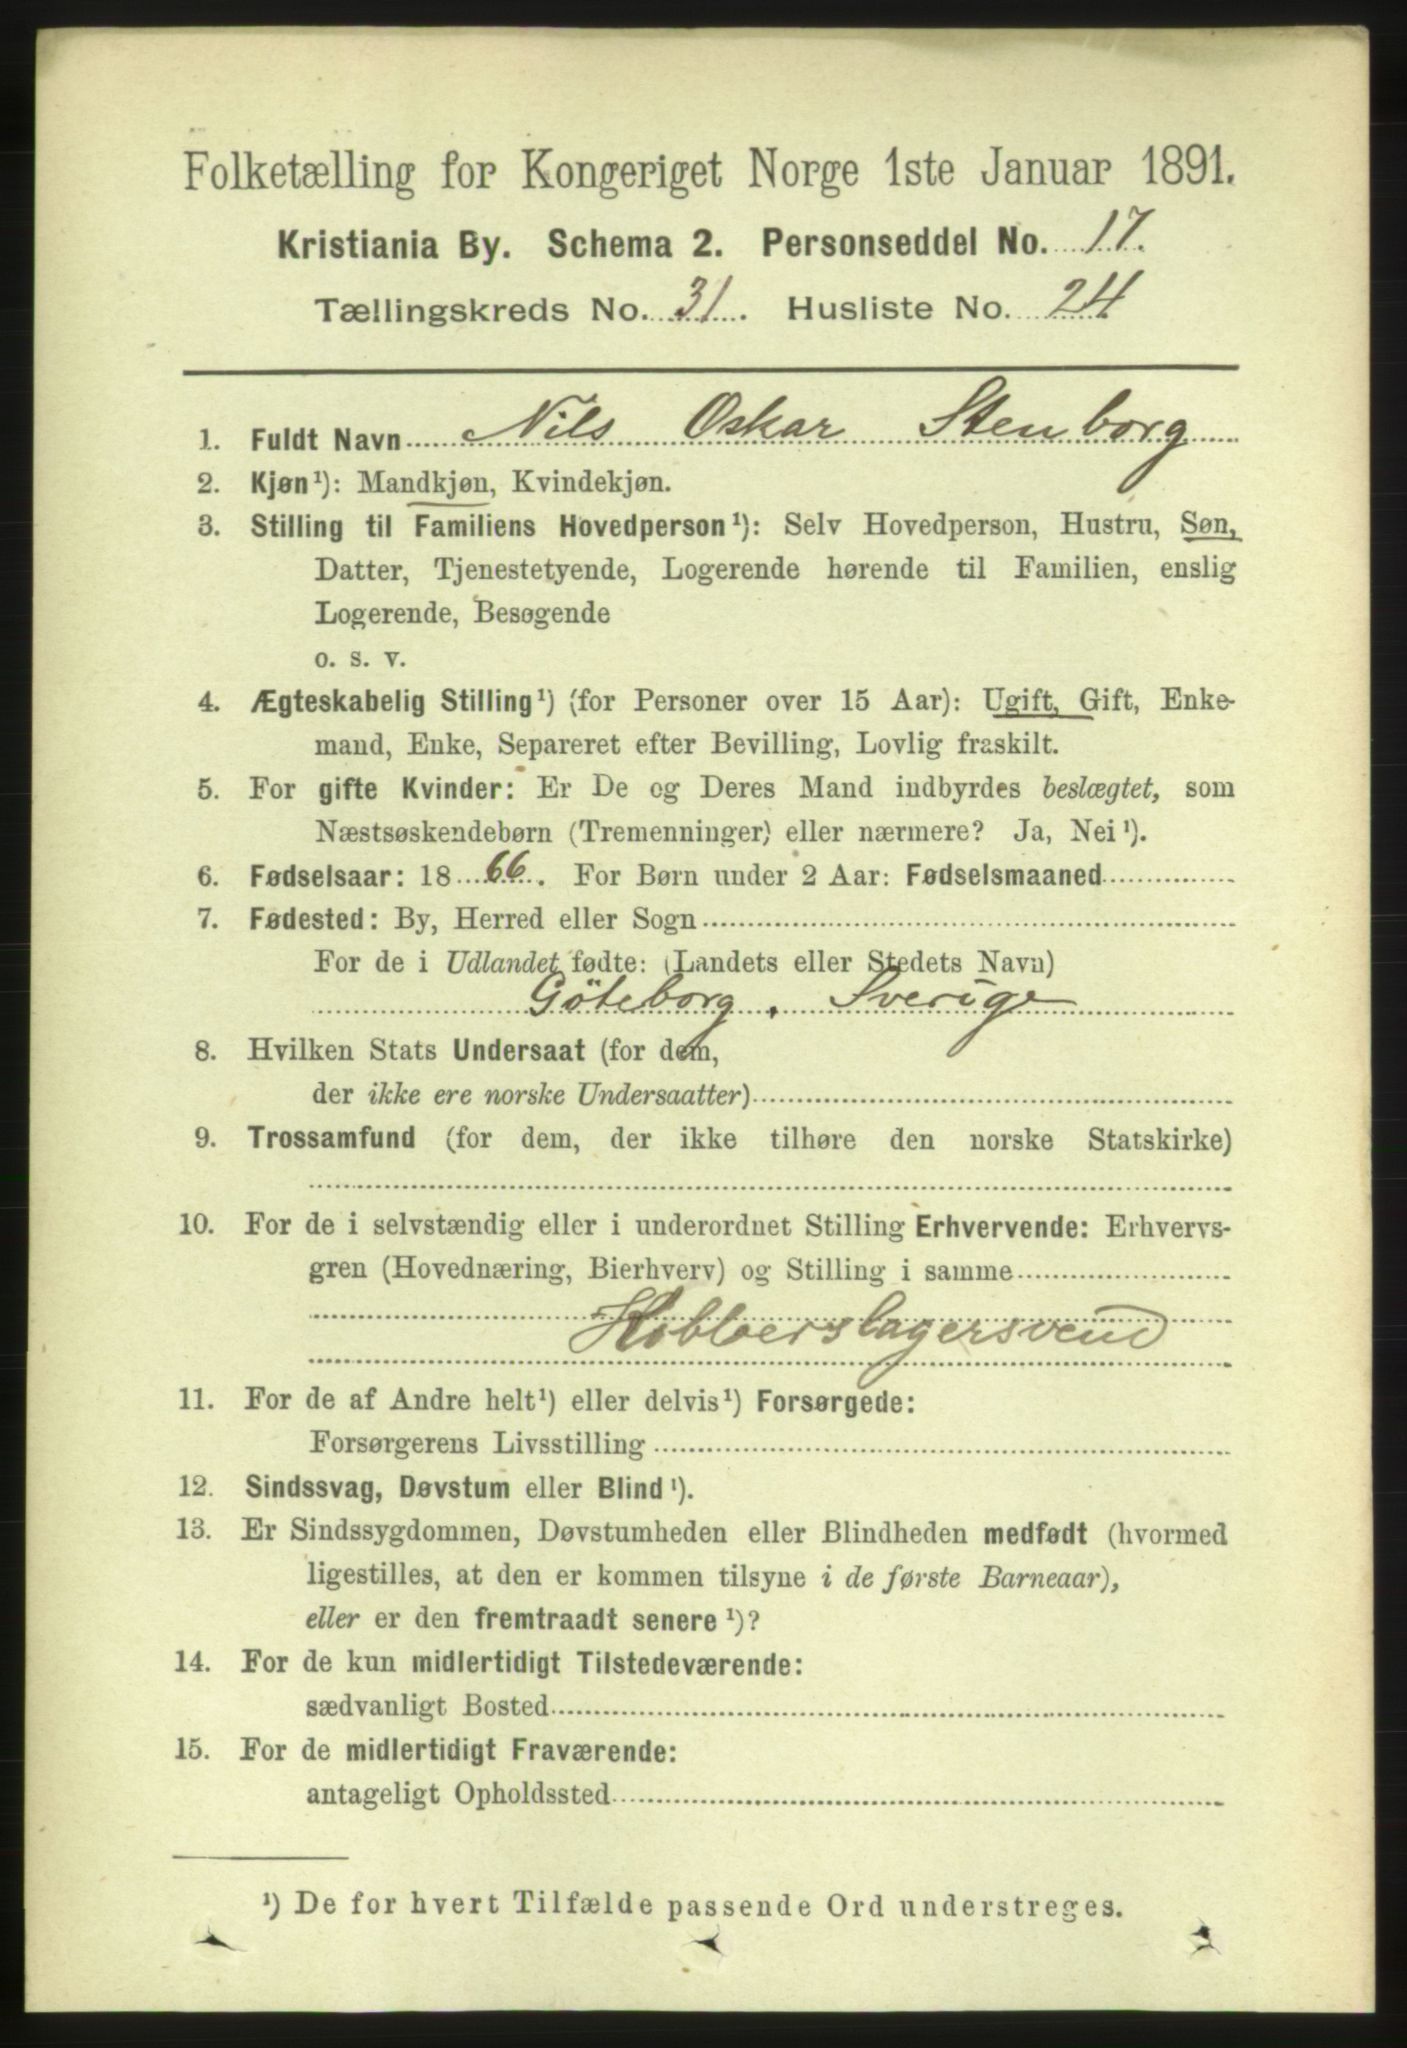 Folketælling for Kongeriget Norge 1ste Januar 1891.
Kristiania By. Schema 2. Personseddel No. 17.
Tællingskreds No. 31. Husliste No. 24
1. Fuldt Navn Nils Oskar Stenborg
2. Kjøn¹): Mandkjøn, Kvindekjøn.
3. Stilling til Familiens Hovedperson¹): Selv Hovedperson, Hustru, Søn,
Datter, Tjenestetyende, Logerende hørende til Familien, enslig
Logerende, Besøgende
o. s. v.
4. Ægteskabelig Stilling¹) (for Personer over 15 Aar): Ugift, Gift, Enke-
mand, Enke, Separeret efter Bevilling, Lovlig fraskilt.
5. For gifte Kvinder: Er De og Deres Mand indbyrdes beslægtet, som
Næstsøskendebørn (Tremenninger) eller nærmere? Ja, Nei¹).
6. Fødselsaar: 1866. For Børn under 2 Aar: Fødselsmaaned
7. Fødested: By, Herred eller Sogn
For de i Udlandet fødte: (Landets eller Stedets Navn)
Göteborg, Sverige
8. Hvilken Stats Undersaat (for dem,
der ikke ere norske Undersaatter)
9. Trossamfund (for dem, der ikke tilhøre den norske Statskirke)
10. For de i selvstændig eller i underordnet Stilling Erhvervende: Erhvervs-
gren (Hovednæring, Bierhverv) og Stilling i samme
Kobberslagersvend
11. For de af Andre helt¹) eller delvis¹) Forsørgede:
Forsørgerens Livsstilling
12. Sindssvag, Døvstum eller Blind¹).
13. Er Sindssygdommen, Døvstumheden eller Blindheden medfødt (hvormed
ligestilles, at den er kommen tilsyne i de første Barneaar),
eller er den fremtraadt senere¹)?
14. For de kun midlertidigt Tilstedeværende:
sædvanligt Bosted
15. For de midlertidigt Fraværende:
antageligt Opholdssted
¹) De for hvert Tilfælde passende Ord understreges.